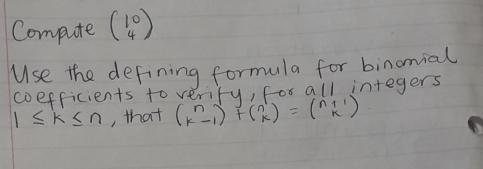 Compute (10 4)
Use the defining formula for binomial
coefficients to verify, for all integers
1 ≤ k ≤ n, that (n k-1) + (n k) = (n+1 k)